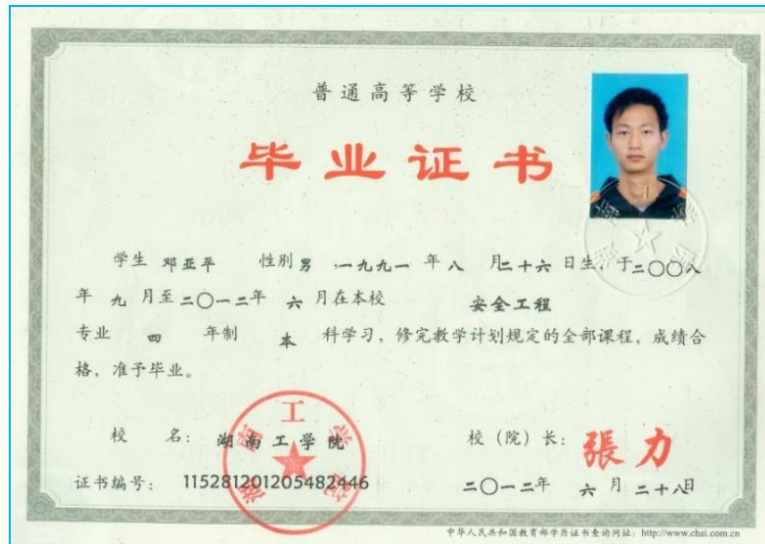 普通高等学校
毕业证书
学生 邓亚平 性别 男 ,一九九一 年 八 月 二十六 日生,于二〇〇八
年 九 月至 二〇一二年 六 月在本校 安全工程
专业 四 年制 本 科学习,修完教学计划规定的全部课程,成绩合
格,准予毕业。
校 名: 湖南工学院 校(院)长: 張力
证书编号: 115281201205482446 二〇一二年 六 月 二十八日
中华人民共和国教育部学历证书查询网址:http://www.chsi.com.cn